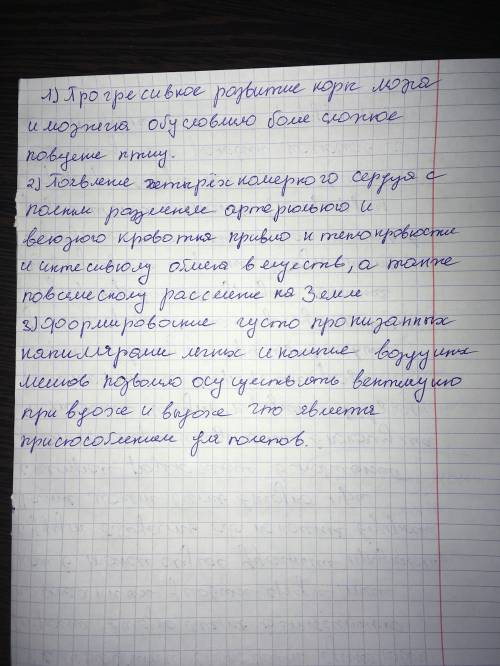 1) Прогресивное развитие коры мозга
и мозжечка обусловило боле сложное
поведене птиц.
2) Появлене четырёхкамерного сердца с
полным разделенем артерильного и
веюзного кровотка привло к теплокровности
и интесивному обмена веществ, а также
повсеместному расселение на Земле
3) Формировоние густо пронизанных
капилярами легких и наличие воздушных
мешков позволло осуществлять вентиляцию
при вдохе и выдохе что является
приспособлением для полетов.